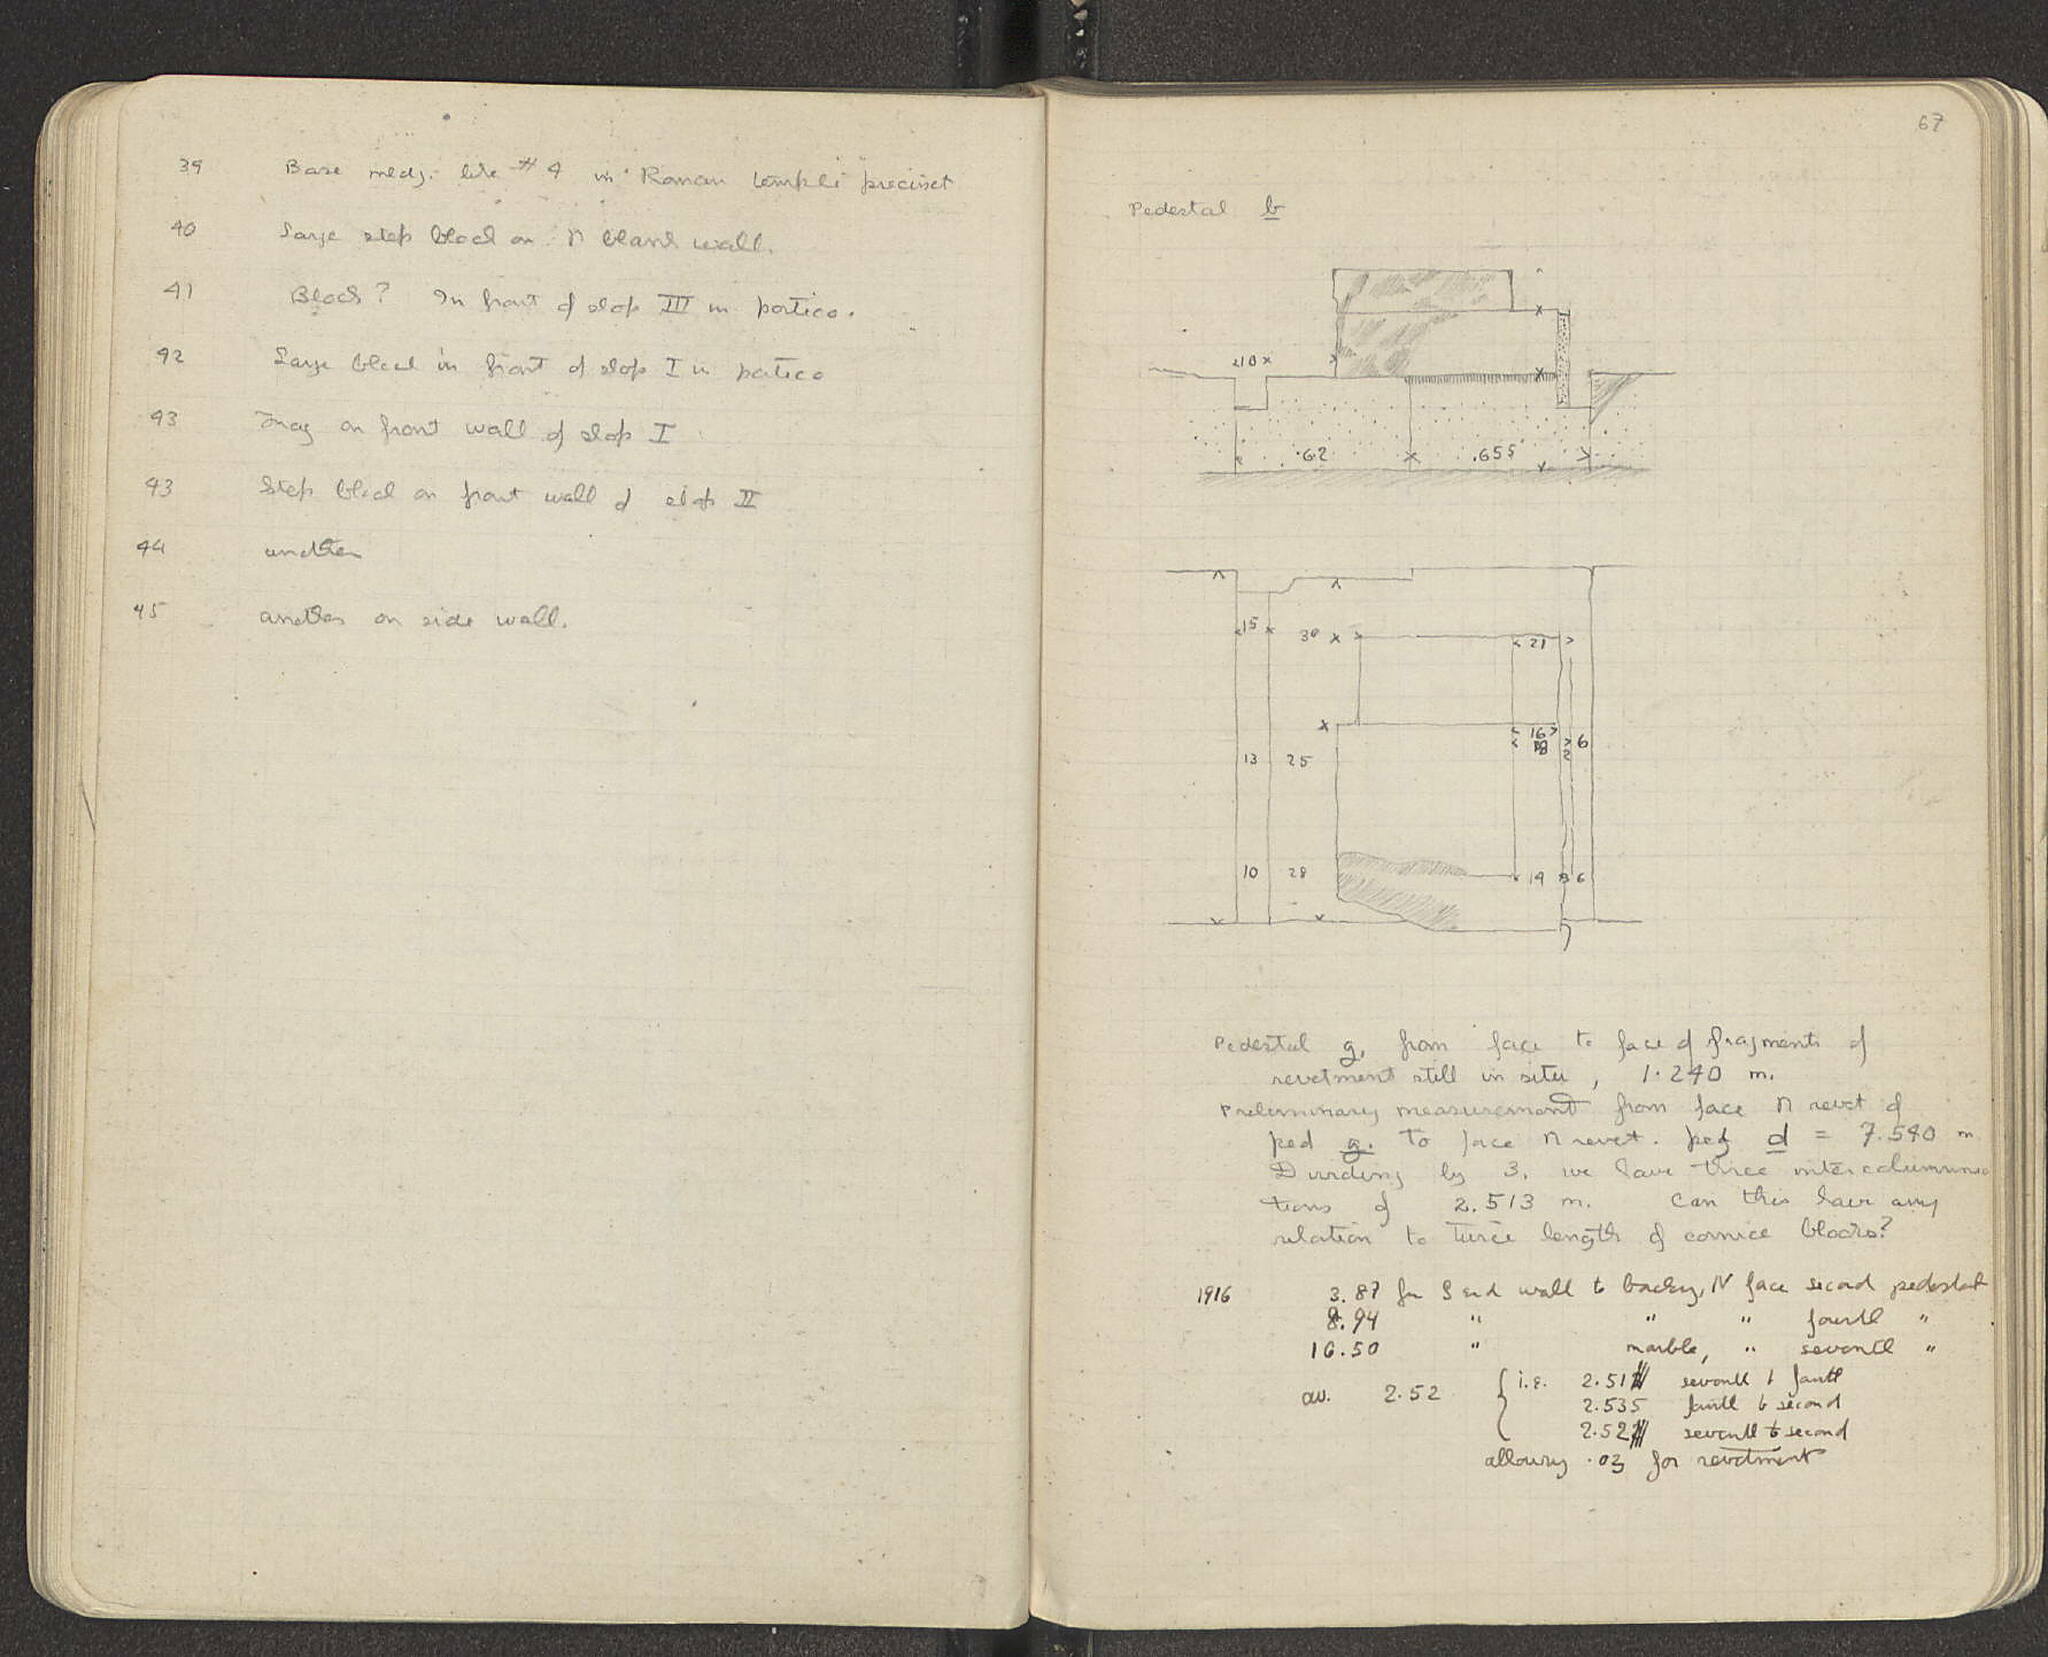 39 Base mldg. like #4 in "Roman temple" precinct
40 Large step block on N blank wall.
41 Block? In front of shop III in portico.
42 Large block in front of shop I in portico
43 Frag on front wall of shop I
43 Step block on front wall of shop II
44 another
45 another on side wall.
67
Pedestal b
210 x
.62 x .655
15 x 30 x 21
16
18 2 6
13 25
10 28 19 6
Pedestal g, from face to face of fragments of
revetment still in situ, 1.240 m.
Preliminary measurement from face N revet of
ped g. to face N revet. ped d = 7.540 m
Dividing by 3, we have three intercolumnia
tions of 2.513 m. Can this have any
relation to twice length of cornice blocks?
1916 3.87 fr S end wall to backing, N face second pedestal
8.94 " " " fourth "
16.50 " marble, " seventh "
av. 2.52 { i.e. 2.51 seventh to fourth
2.535 fourth to second
2.52 seventh to second
allowing .03 for revetment